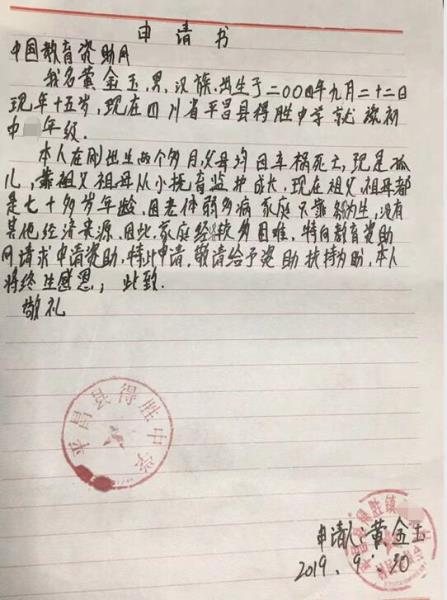 申请书
中国教育资助网
我名黄金玉,男,汉族,出生于二〇〇四年九月二十二日
现年十五岁,现在四川省平昌县得胜中学就读初
中 年级.
本人在刚出生两个多月,父母均因车祸死亡,现是孤
儿,靠祖父祖母从小抚育监护成长,现在祖父祖母都
是七十多岁年龄,因老体弱多病,家庭只靠务农为生,没有
其他经济来源,因此,家庭经济较多困难,特向教育资助
网请求申请资助,特此申请,敬请给予资助扶持为盼,本人
将终生感恩; 此致.
敬礼
平昌县得胜中学
申请人:黄金玉
2019.9.30